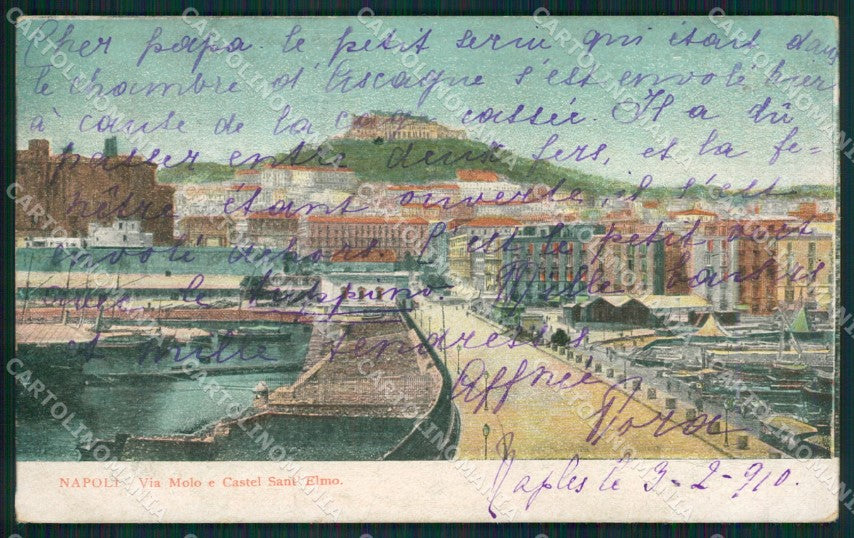 Cher papa. le petit serin qui était dans
le chambre d'Ascagne s'est envolé hier
à cause de la cage cassée. Il a dû
passer entre deux fers, et la fe-
nêtre étant ouverte, il s'est
envolé dehors. C'est le petit vert
avec le
Mille baisers
et mille tendresses
Affnée
Nora
Naples le 3-2-910.
NAPOLI Via Molo e Castel Sant'Elmo.
CARTOLINOMANIA